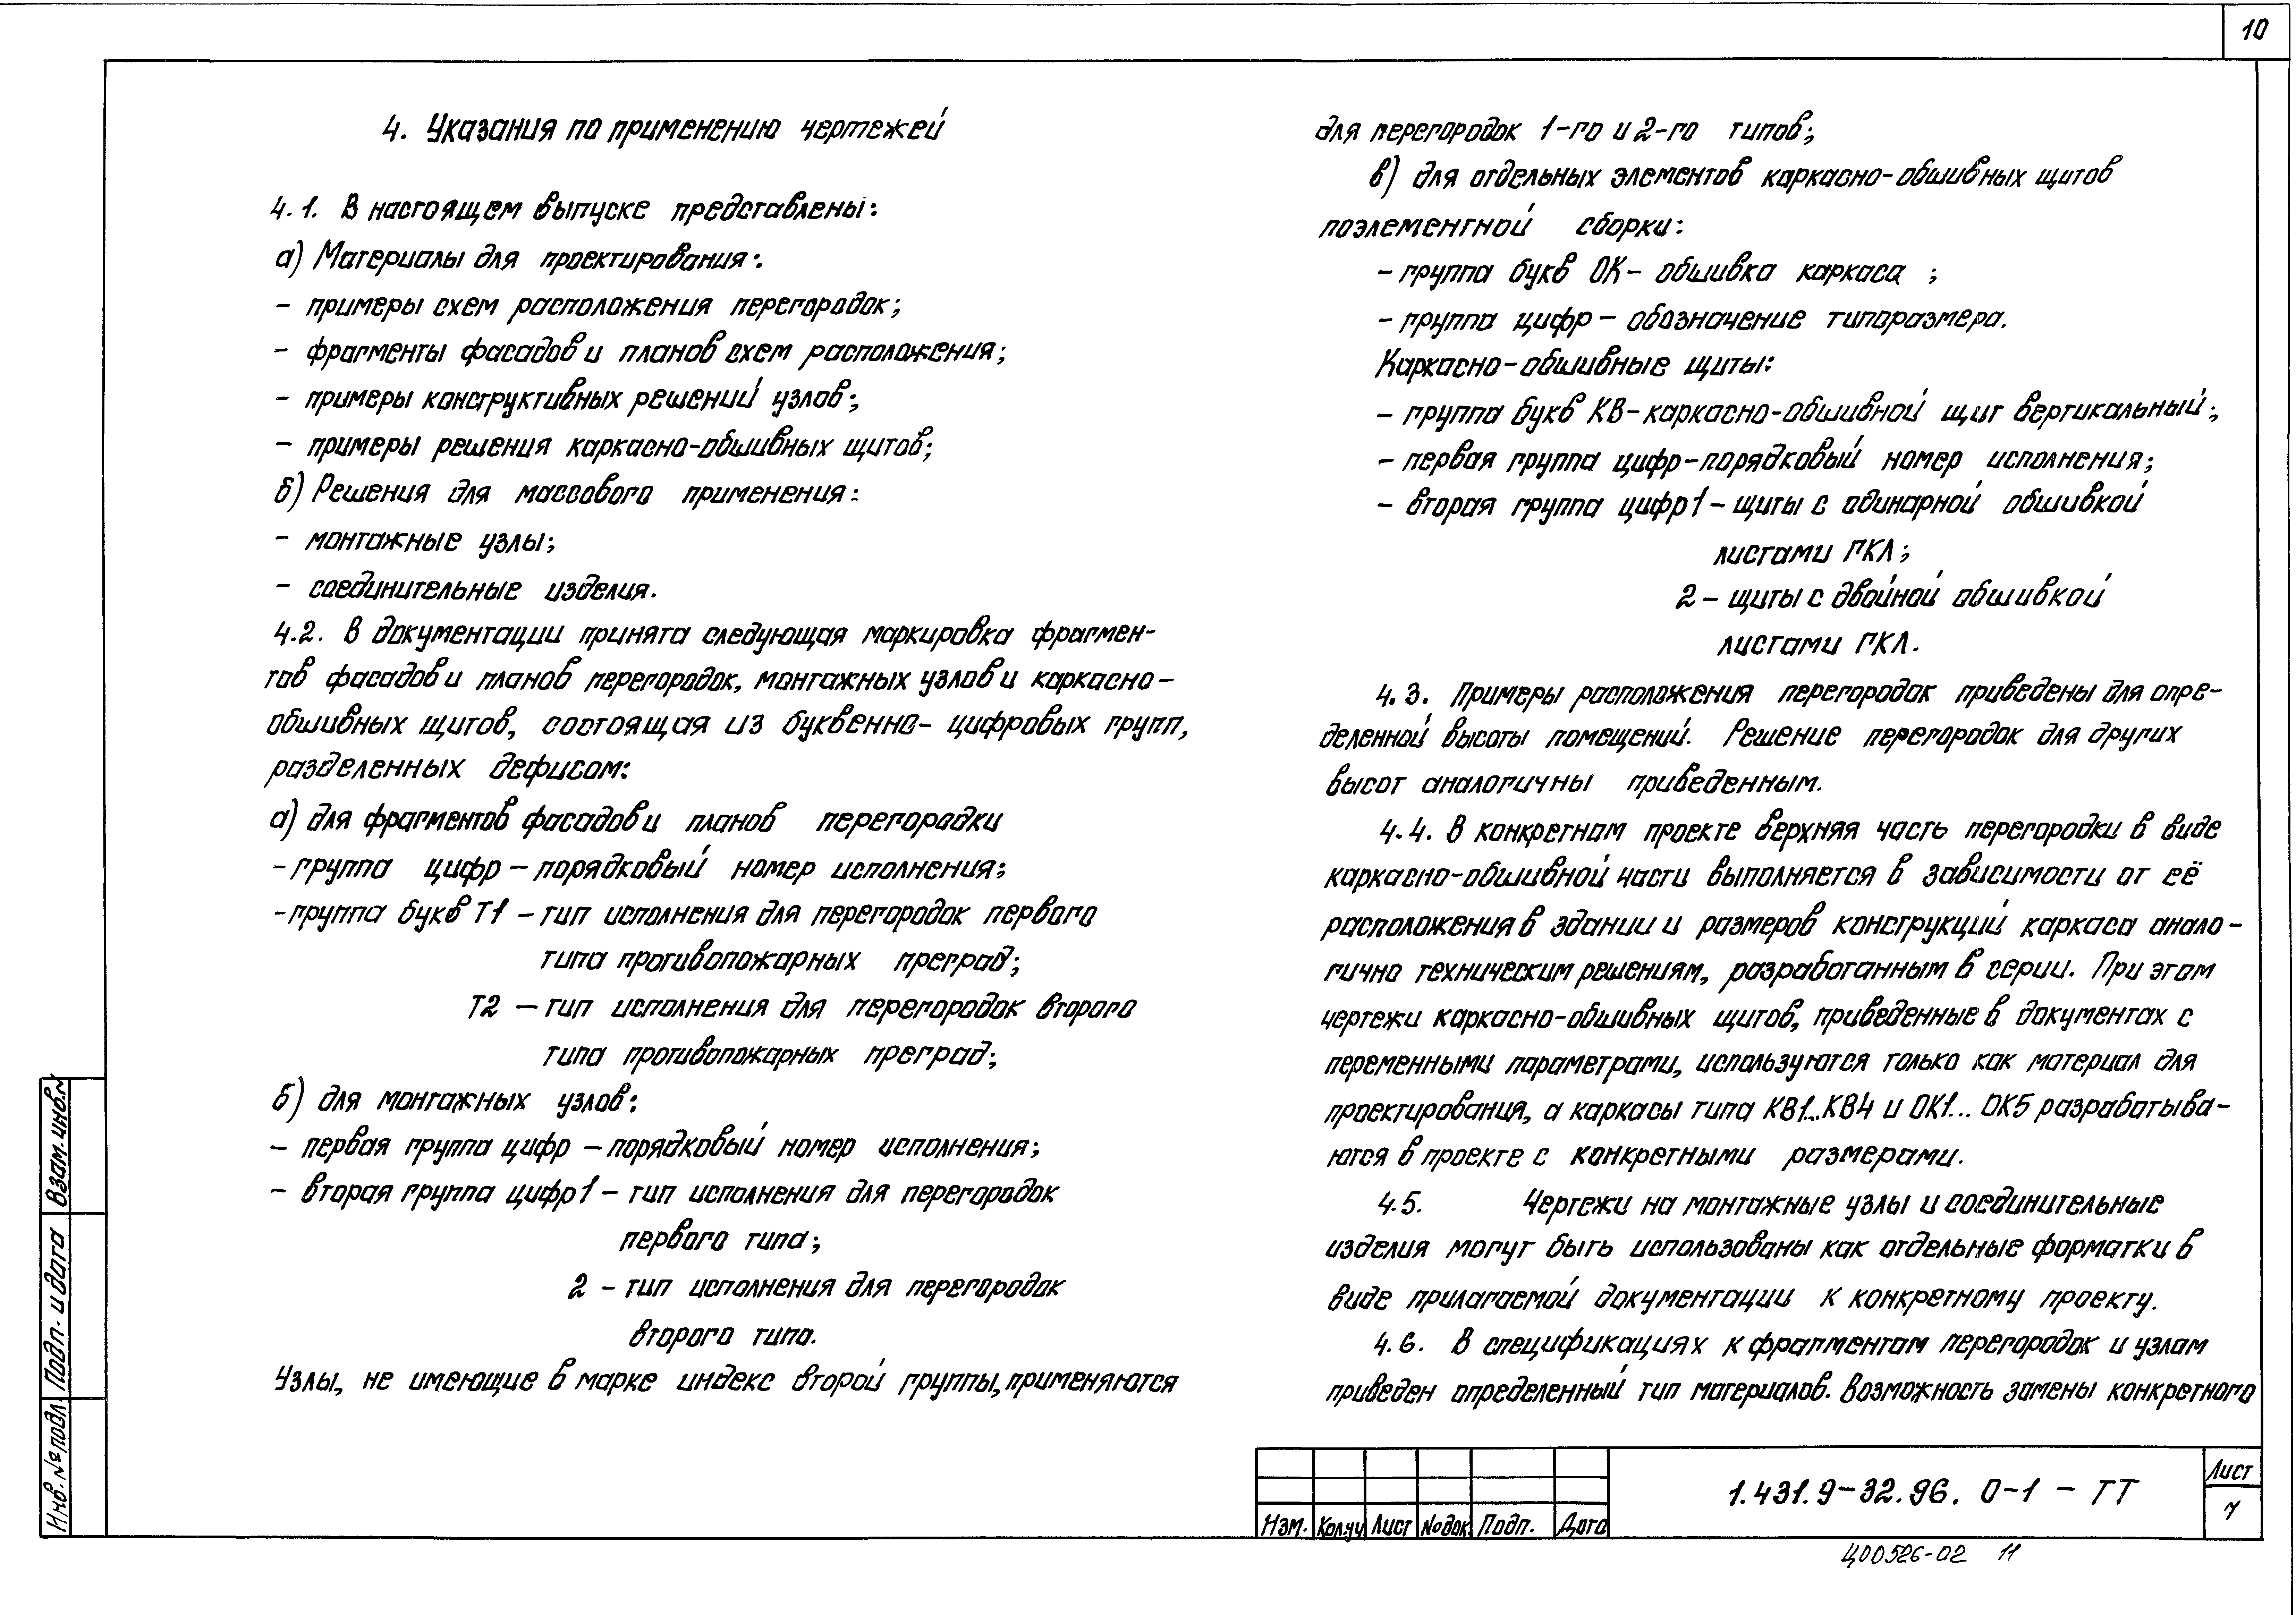 10
4. Указания по применению чертежей
4.1. В настоящем выпуске представлены:
а) Материалы для проектирования:
- примеры схем расположения перегородок;
- фрагменты фасадов и планов схем расположения;
- примеры конструктивных решений узлов;
- примеры решения каркасно-обшивных щитов;
б) Решения для массового применения:
- монтажные узлы;
- соединительные изделия.
4.2. В документации принята следующая маркировка фрагмен-
тов фасадов и планов перегородок, монтажных узлов и каркасно-
обшивных щитов, состоящая из буквенно-цифровых групп,
разделенных дефисом:
а) для фрагментов фасадов и планов перегородки
- группа цифр - порядковый номер исполнения;
- группа букв Т1 - тип исполнения для перегородок первого
типа противопожарных преград;
Т2 - тип исполнения для перегородок второго
типа противопожарных преград;
б) для монтажных узлов:
- первая группа цифр - порядковый номер исполнения;
- вторая группа цифр 1 - тип исполнения для перегородок
первого типа;
2 - тип исполнения для перегородок
второго типа.
Узлы, не имеющие в марке индекс второй группы, применяются
для перегородок 1-го и 2-го типов;
в) для отдельных элементов каркасно-обшивных щитов
поэлементной сборки:
- группа букв ОК - обшивка каркаса;
- группа цифр - обозначение типоразмера.
Каркасно-обшивные щиты:
- группа букв КВ - каркасно-обшивной щит вертикальный;
- первая группа цифр - порядковый номер исполнения;
- вторая группа цифр 1 - щиты с одинарной обшивкой
листами ГКЛ;
2 - щиты с двойной обшивкой
листами ГКЛ.
4.3. Примеры расположения перегородок приведены для опре-
деленной высоты помещений. Решение перегородок для других
высот аналогичны приведенным.
4.4. В конкретном проекте верхняя часть перегородки в виде
каркасно-обшивной части выполняется в зависимости от её
расположения в здании и размеров конструкций каркаса анало-
гично техническим решениям, разработанным в серии. При этом
чертежи каркасно-обшивных щитов, приведенные в документах с
переменными параметрами, используются только как материал для
проектирования, а каркасы типа КВ1...КВ4 и ОК1... ОК5 разрабатыва-
ются в проекте с конкретными размерами.
4.5. Чертежи на монтажные узлы и соединительные
изделия могут быть использованы как отдельные форматки в
виде прилагаемой документации к конкретному проекту.
4.6. В спецификациях к фрагментам перегородок и узлам
приведен определенный тип материалов. Возможность замены конкретного
Взам. инв. №
Подп. и дата
Инв. № подл
Изм. Кол.уч Лист №док Подп. Дата
1.431.9-32.96. 0-1 - ТТ
Лист
7
Ц00526-02 11